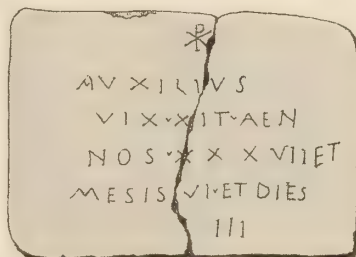 ☧
AVXILIVS
VIX·XIT·AEN
NOS·X X XVIIET
MESIS VI·ET DIES
III